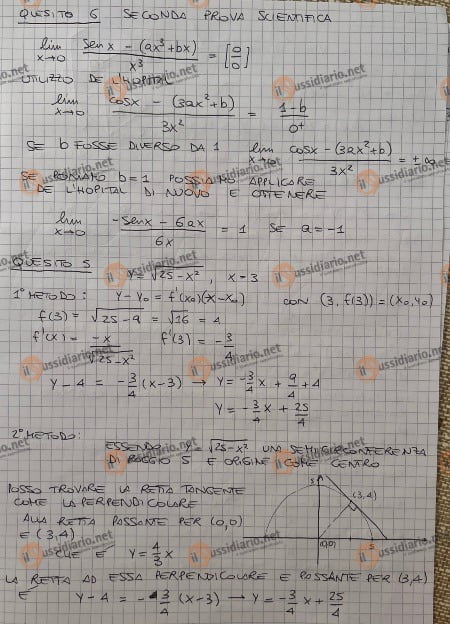 QUESITO 6 SECONDA PROVA SCIENTIFICA
lim x→0 (sen x - (ax³+bx))/x³ = [0/0]
UTILIZZO DE L'HOPITAL
lim x→0 (cos x - (3ax²+b))/3x² = (1-b)/0⁺
SE b FOSSE DIVERSO DA 1 lim x→0 (cos x - (3ax²+b))/3x² = ±∞
SE PONIAMO b=1 POSSIAMO APPLICARE
DE L'HOPITAL DI NUOVO E OTTENERE
lim x→0 (-sen x - 6ax)/6x = 1 SE a=-1
QUESITO 5 y=√(25-x²), x=3
1° METODO: y-y₀ = f'(x₀)(x-x₀) CON (3, f(3)) = (x₀,y₀)
f(3) = √(25-9) = √16 = 4
f'(x) = -x/√(25-x²) f'(3) = -3/4
y-4 = -3/4 (x-3) → y=-3/4 x + 9/4 + 4
y = -3/4 x + 25/4
2° METODO:
ESSENDO y=√(25-x²) UNA SEMICIRCONFERENZA
DI RAGGIO 5 E ORIGINE COME CENTRO
POSSO TROVARE LA RETTA TANGENTE
COME LA PERPENDICOLARE
ALLA RETTA PASSANTE PER (0,0)
E (3,4)
CHE È y=4/3 x
5
(3,4)
(0,0)
5
LA RETTA AD ESSA PERPENDICOLARE E PASSANTE PER (3,4)
È y-4 = -3/4 (x-3) → y=-3/4 x + 25/4
ilSussidiario.net